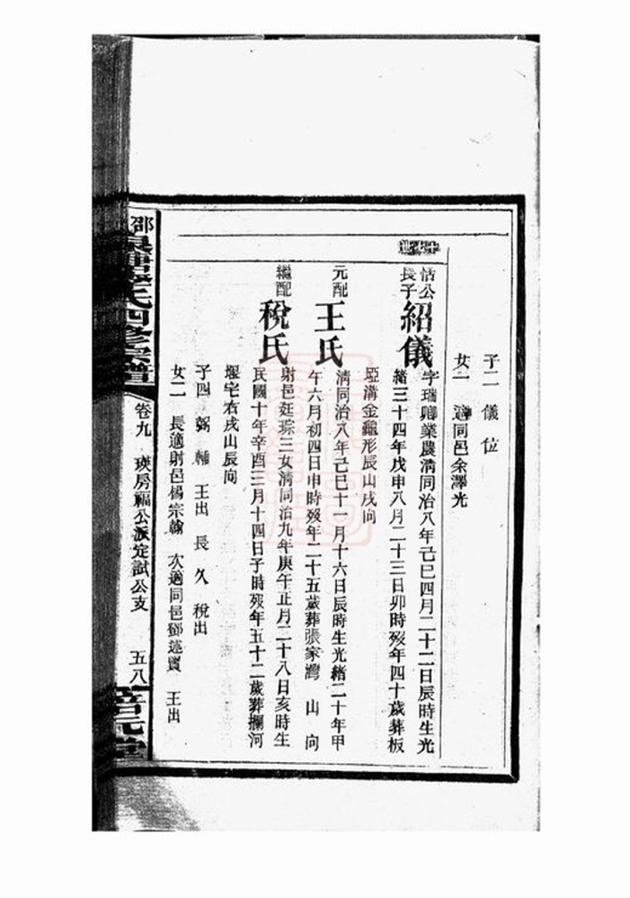 子二 儀 位
女一 適同邑余澤光
恬公長子 紹儀 字瑞卿業農清同治八年己巳四月二十二日辰時生光
緒三十四年戊申八月二十三日卯時歿年四十歲葬板
埡溝金龜形辰山戌向
元配 王氏 清同治八年己巳十一月十六日辰時生光緒二十年甲
午六月初四日申時歿年二十五歲葬張家灣 山 向
繼配 稅氏 射邑廷琮三女清同治九年庚午正月二十八日亥時生
民國十年辛酉三月十四日子時歿年五十二歲葬攔河
堰宅右戌山辰向
子四 弼 輔 王出 長 久 稅出
女二 長適射邑楊宗翰 次適同邑鄧述賢 王出
邵 氏四修宗譜 卷九 瑛房福公派定試公支 五八